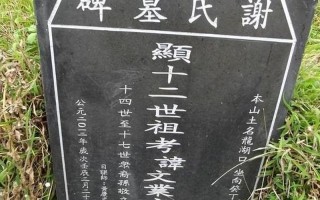 謝氏墓碑
本山土名龍湖口坐向癸丁
顯十二世祖考諱文業
十四世至十七世眾裔孫敬立
公元二〇一二年歲次壬辰二月二十